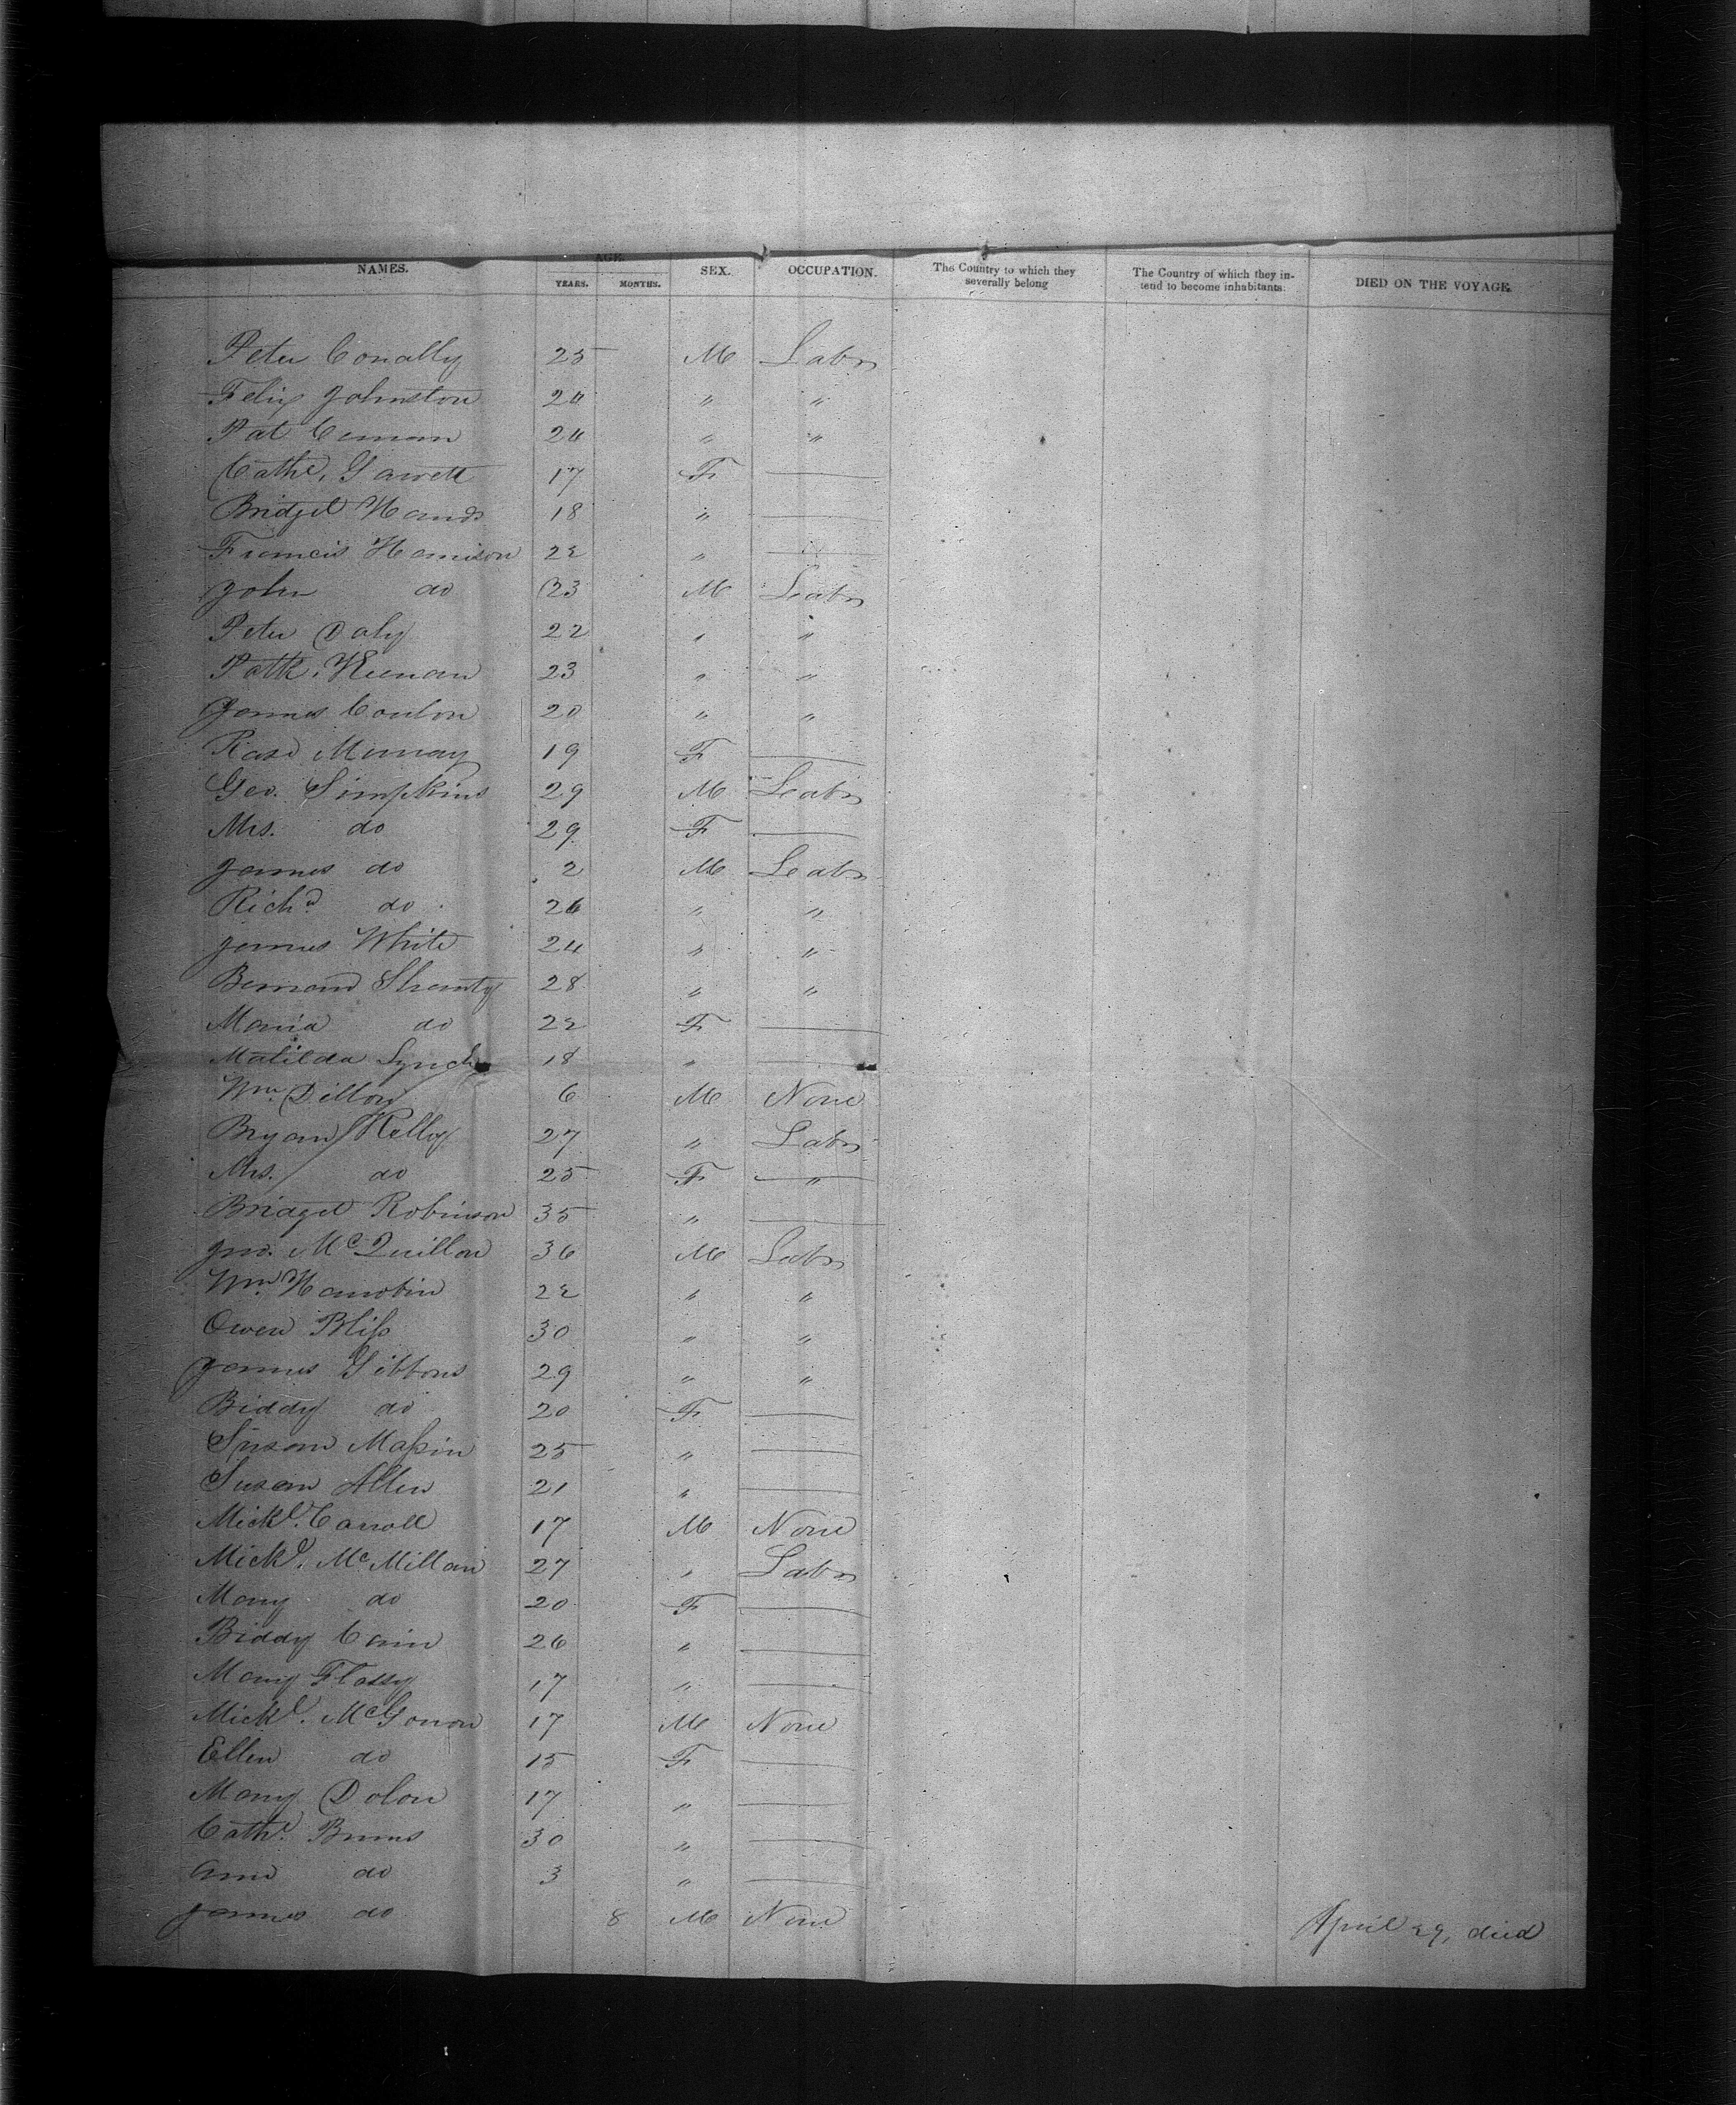 NAMES. AGE. YEARS. MONTHS. SEX. OCCUPATION. The Country to which they severally belong The Country of which they in-tend to become inhabitants. DIED ON THE VOYAGE.
Peter Conally 25 M Labr
Felix Johnston 24 " "
Pat 24 " "
Cathe. Garrett 17 F
Bridget Hands 18 "
Francis Harrison 22 "
John do 23 M Labr
Peter Daly 22 " "
Patk. Keenan 23 " "
James Conlon 20 " "
Rose Murray 19 F
Geo. Simpkins 29 M Labr
Mrs. do 29 F
James do 2 M Labr
Richd do 26 " "
James White 24 " "
Bernard Shanty 28 " "
Maria do 22 F
Matilda Lynch 18 "
Wm. Dillon 6 M None
Bryan Kelly 27 " Labr
Mrs. do 25 F "
Bridget Robinson 35 "
Jno. McQuillon 36 M Labr
Wm. 22 " "
Owen Bliss 30 " "
James Gibbons 29 " "
Biddy do 20 F
Susan Massin 25 "
Susan Allen 21 "
Michl. Carroll 17 M None
Michl. McMillan 27 " Labr
Mary do 20 F
Biddy Cain 26 "
Mary 17 "
Michl. McGonon 17 M None
Ellen do 15 F
Mary Dolon 17 "
Cathe. Burns 30 "
Ann do 3 "
James do 8 M None April 29, died